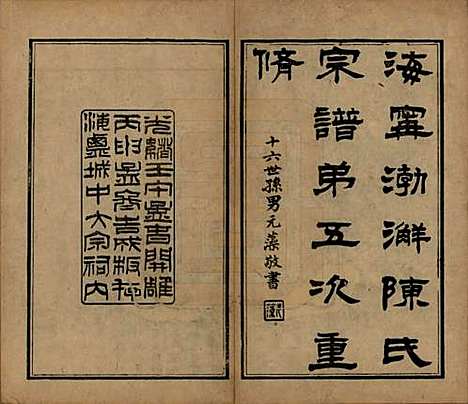 海寗渤澥陳氏
宗譜弟五次重
脩
十六世孫男元藻敬書
光緒壬午孟春開雕
丙申孟冬告成板存
海寧城中大宗祠内